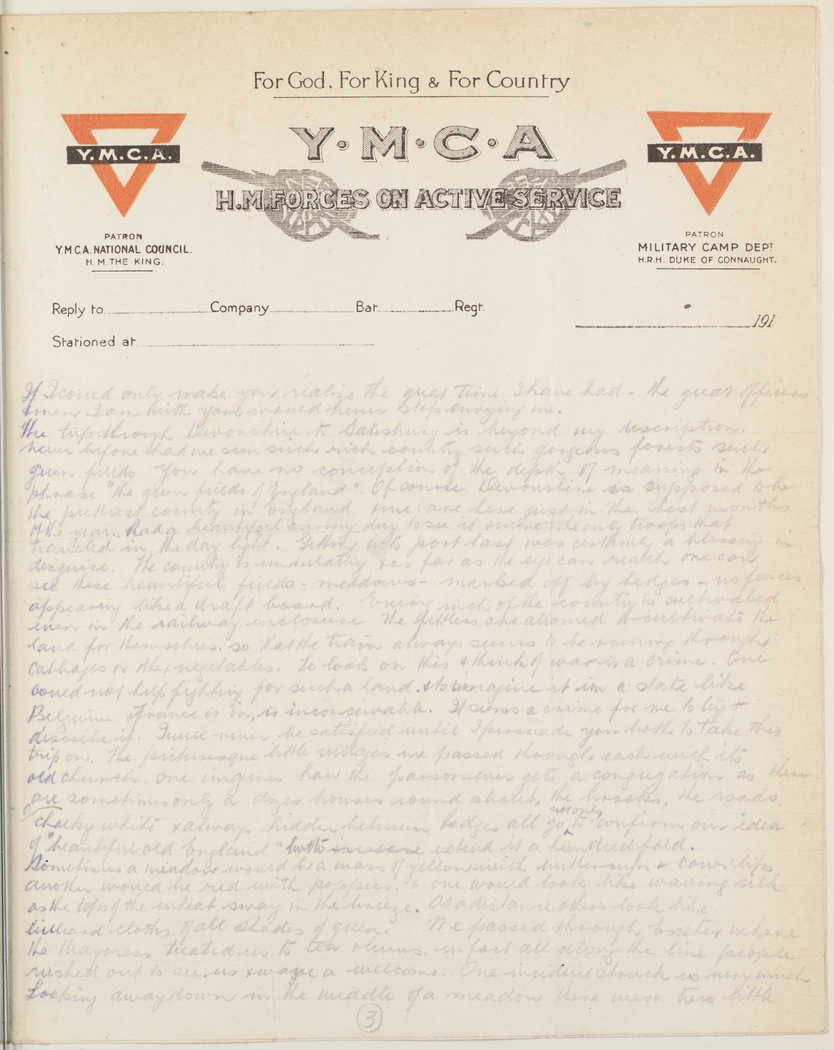 For God, For King & For Country
Y·M·C·A
H.M. FORCES ON ACTIVE SERVICE
Y.M.C.A.
Y.M.C.A.
PATRON
Y.M.C.A. NATIONAL COUNCIL.
H.M. THE KING.
PATRON
MILITARY CAMP DEPT
H.R.H. DUKE OF CONNAUGHT.
Reply to Company Bat Regt.
191
Stationed at
If I could only make you realize the great time I have had - the great officers
& men I am with you would never stop envying me.
The trip through Devonshire to Salisbury is beyond my description.
Never before had we seen such rich country such gorgeous forests such
green fields. You have no conception of the depth of meaning in the
phrase "the green fields of England". Of course Devonshire is supposed to be
the prettiest county in England & we are here just in the best months
of the year. Had a beautiful sunny day to see it & were the only troops that
travelled in the day light. Getting into port last was certainly a blessing in
disguise. The country is undulating & as far as the eye can reach one can
see these beautiful fields - meadows - marked off by hedges - no fences
appearing like a draft board. Every inch of the country is cultivated
even in the railway enclosure the fettlers are allowed to cultivate the
land for themselves. so that the train always seems to be running through
cabbages or other vegetables. To look on this & think of war is a crime. One
could not help fighting for such a land. & to imagine it in a state like
Belgium & France is in, is inconceivable. It seems a crime for me to try &
describe it. I will never be satisfied until I persuade you both to take this
trip on. The picturesque little villages we passed through each with its
old church. one imagines how the parson ever gets a congregation as there
are sometimes only a dozen houses round about, the brooks, the roads.
chalky white & always hidden between hedges all go not only to confirm our idea
of "beautiful old England" but to increase extend it a hundred fold.
Sometimes a meadow would be a mass of yellow with buttercups & cowslips
another would be red with poppies. & one would look like waving silk
as the tops of the wheat sway in the breeze. At a distance others look like
billiard cloths of all shades of green. We passed through Exeter where
the Mayoress treated us to tea & buns. in fact all along the line people
rushed out to see us & wave a welcome. One incident struck us very much
Looking away down in the middle of a meadow there were two little
3